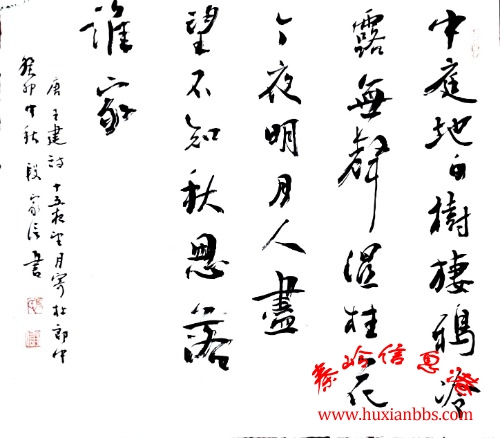 中庭地白樹棲鴉冷
露無聲濕桂花
今夜明月人盡
望不知秋思落
誰家
唐王建詩十五夜望月寄杜郎中
癸卯中秋 段家信書
秦岭信息港
www.huxianbbs.com